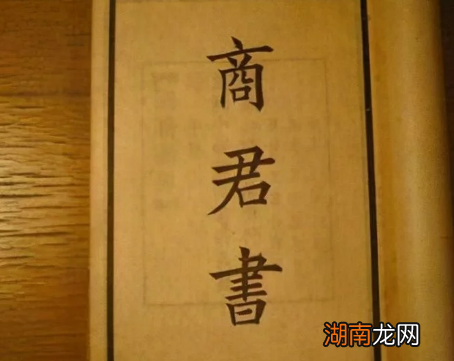 商君書
湖南龙网